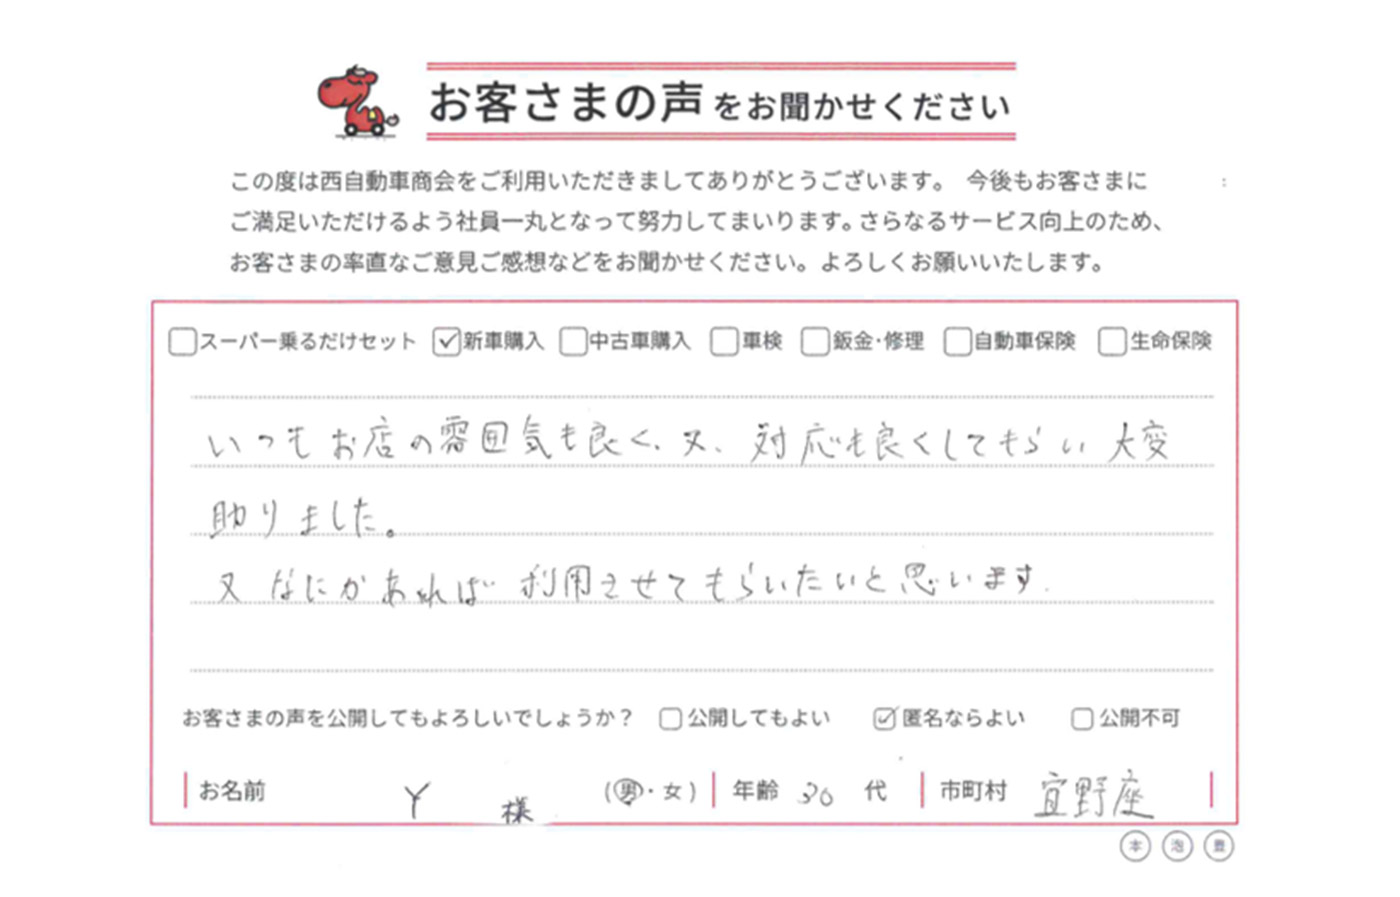 お客さまの声をお聞かせください
この度は西自動車商会をご利用いただきましてありがとうございます。 今後もお客さまに
ご満足いただけるよう社員一丸となって努力してまいります。さらなるサービス向上のため、
お客さまの率直なご意見ご感想などをお聞かせください。よろしくお願いいたします。
□スーパー乗るだけセット ☑新車購入 □中古車購入 □車検 □鈑金・修理 □自動車保険 □生命保険
いつもお店の雰囲気も良く、又、対応も良くしてもらい大変
助りました。
又なにかあれば利用させてもらいたいと思います.
お客さまの声を公開してもよろしいでしょうか？ □公開してもよい ☑匿名ならよい □公開不可
お名前 Y 様 (男・女) 年齢 30 代 市町村 宜野座
本 泡 豊